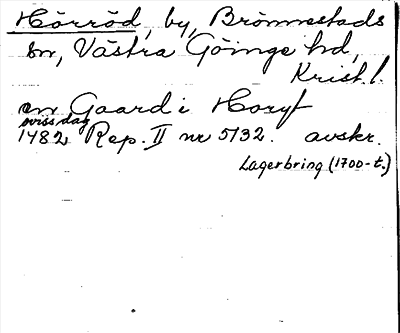 Hörröd, by, Brönnestads
sn, Västra Göinge hd,
Krist. l.
en Gaard i Horyf
oviss dag
1482 Rep. II nr 5132. avskr.
Lagerbring (1700-t.)